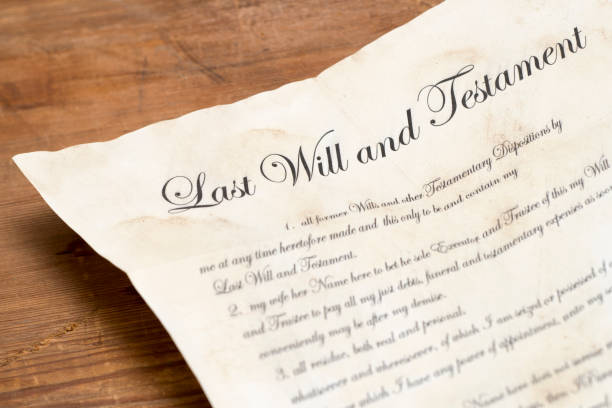 Last Will and Testament
1. all former Wills and other Testamentary Dispositions by
me at any time heretofore made and this only to be and contain my
Last Will and Testament.
2. my wife her Name here to bet be sole Executor and Trustee of this my Will
and Trustee to pay all my just debts, funeral and testamentary expenses as
conveniently may be after my demise.
3. all residue, both real and personal,
whatsoever and wheresoever, of which I am seized or possessed of
which I have any power of appointment, unto my
Name here does not